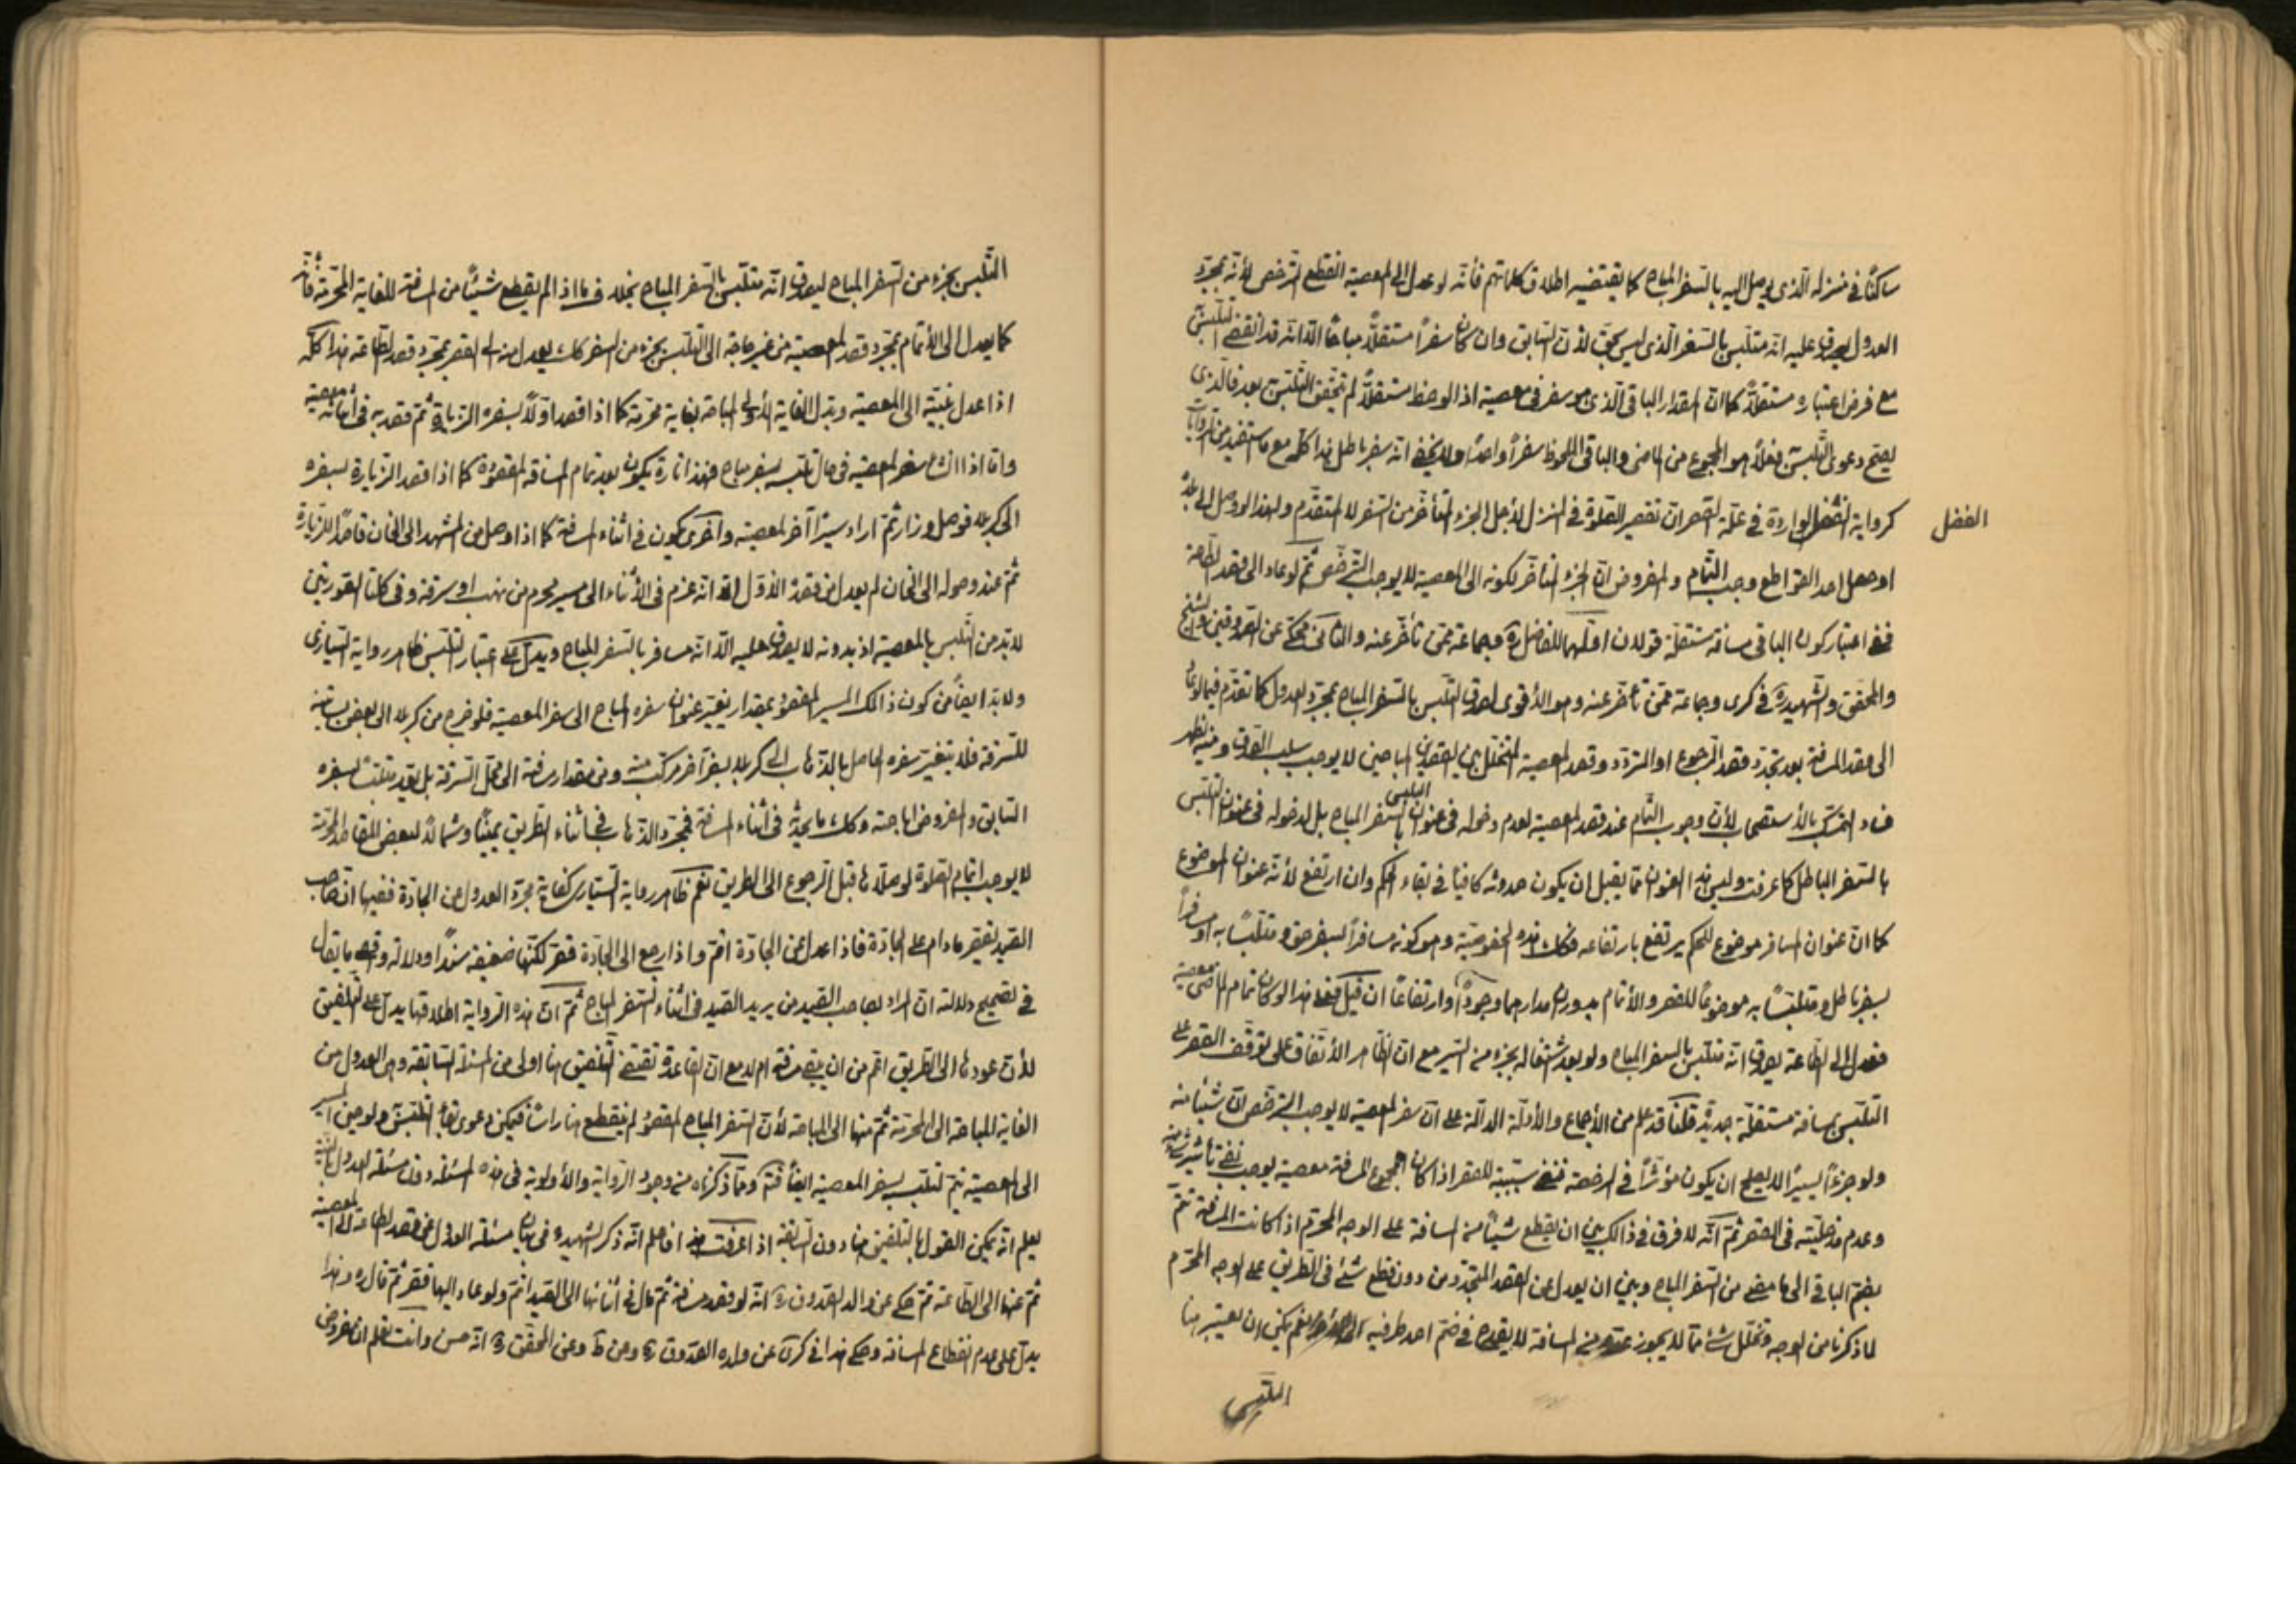 ساكنًا في منزله الّذي يوصل اليه بالسّفر المباح كما يقتضيه اطلاق كلماتهم فأنّه لو عدل الى المعصية انقطع الترخص لأنّه بمجرّد
العدول يصدق عليه انّه متلبّس بالسّفر الّذي ليس بحقّ لأنّ السّابق وان كان سفرًا مستقلًا مباحًا الّا انّه قد انقضى التّلبّس
مع فرض اعتباره مستقلًا كما انّ المقدار الباقي الّذي هو سفر في معصية اذا لوحظ مستقلًا لم يتحقّق التّلبّس بعد فالّذي
يصحّ دعوى التّلبّس فعلًا هو المجموع من الماضي والباقي الملحوظ سفرًا واحدًا ولا يخفى انّه سفر باطل هذا كلّه مع ما يستفيد من الرّوايات
كرواية الفضل الواردة في علّة القصر انّ تقصير الصّلوة في المنزل لأجل الجزء المتأخّر من السّفر لا المتقدّم ولهذا لو وصل الى بلده
الفضل
او حصل احد القواطع وجب التّمام والمفروض انّ الجزء المتأخّر لكونه الى المعصية لا يوجب التّرخّص ثمّ لو عاد الى قصد الطّاعة
ففي اعتبار كون الباقي مسافة مستقلّة قولان اوّلهما للفاضل ره وجماعة ممّن تأخّر عنه والثّاني محكيّ عن الصّدوقين والشّيخ
والمحقّق والشّهيد ره في كرى وجماعة ممّن تأخّر عنه وهو الأقوى لصدق التّلبّس بالسّفر المباح بمجرّد العدول كما تقدّم فيما لو عاد
الى قصد المسافة بعد تجدّد قصد الرّجوع او التردّد وقصد المعصية المتخلّل بين القصدين المباحين لا يوجب سلب الصّدق ومنه يظهر
فساد التمسّك بالأستصحاب لأنّ وجوب التّمام عند قصد المعصية لعدم دخوله في عنوان التلبس بالسّفر المباح بل لدخوله في عنوان التلبّس
بالسّفر الباطل كما عرفت وليس هذا العنوان ممّا يقبل ان يكون حدوثه كافيًا في بقاء الحكم وان ارتفع لأنّه عنوان الموضوع
كما انّ عنوان المسافر موضوع للحكم يرتفع بارتفاعه فكك هذه الخصوصيّة وهو كونه مسافرًا بسفر حق ومتلبّسًا به او مسافرًا
بسفر باطل ومتلبّسًا به موضوعًا للقصر والأتمام يدوران مدارهما وجودًا وارتفاعًا ان قيل فعلى هذا لو كان تمام الماضي معصية
فعدل الى الطّاعة يصدق انّه متلبّس بالسفر المباح ولو بعد اشتغاله بجزء من السّير مع انّ الظّاهر الأتّفاق على توقّف القصر على
التلبّس بمسافة مستقلّة جديدة قلنا قد علم من الأجماع والأدلّة الدالّة على انّ سفر المعصية لا يوجب التّرخّص انّ شيئًا منه
ولو جزءًا يسيرًا لا يصلح ان يكون مؤثّرًا في الرخصة فنفي سببيّته للقصر اذا كان مجموع المسافة معصية يوجب نفي تأثير شيء منه
وعدم مدخليّته في القصر ثمّ انّه لا فرق في ذلك بين ان يقطع شيئًا من المسافة على الوجه المحرّم اذا كانت المسافة تتمّ
بضمّ الباقي الى ما مضى من السّفر المباح وبين ان يعدل عن القصد المتجدّد من دون قطع شئ في الطّريق على الوجه المحرّم
لما ذكرنا من الوجه وتخلّل شئ ممّا لا يجوز عدّه من المسافة لا يقدح في ضمّ احد طرفيه الى الأخر نعم يمكن ان يعتبر هنا
التلبّس
التّلبّس بجزء من السّفر المباح ليصدق انّه متلبّس بالسّفر المباح بخلاف ما اذا لم يقطع شيئًا من المسافة للغاية المحرّمة فأنّه
كما يعدل الى الأتمام بمجرّد قصد المعصية من غير حاجة الى التّلبّس بجزء من السفر كك يعدل منه الى القصر بمجرّد قصد الطّاعة هذا كلّه
اذا عدل بنيّته الى المعصية وبدّل الغاية الأولى المباحة بغاية محرّمة كما اذا قصد اوّلًا بسفره الزيارة ثمّ قصد به في اثنائه معصية
وامّا اذا انشأ سفر المعصية في حال تلبّسه بسفر مباح فهذا تارة يكون بعد تمام المسافة المقصودة كما اذا قصد الزيارة بسفره
الى كربلا فوصل وزار ثمّ اراد سيرًا آخر لمعصية واخرى يكون في اثناء المسافة كما اذا وصل من المشهد الى الخان قاصدًا للزّيارة
ثمّ عند وصوله الى الخان لم يعدل عن قصده الأوّل الّا انّه عزم في الأثناء الى مسير محرم من نهب او سرقة وفي كلتا الصّورتين
لا بدّ من التّلبّس بالمعصية اذ بدونه لا يصدق عليه الّا انّه مسافر بالسّفر المباح ويدلّ على اعتبار التّلبّس ظاهر رواية السّياري
ولا بدّ ايضًا من كون ذلك المسير المقصود بمقدار يغيّر عنوان سفره المباح الى سفر المعصية فلو خرج من كربلا الى بعض بساتينه
للسّرقة فلا يتغيّر سفره الحاصل بالذّهاب الى كربلا بسفر آخر مركّب منه ومن مقدار مسافة الى محلّ السّرقة بل يعدّ متلبّسًا بسفره
السّابق والمفروض اباحته وكك ما يحدث في اثناء المسافة فمجرّد الذّهاب في اثناء الطّريق يمينًا وشمالًا لبعض المقاصد المحرّمة
لا يوجب اتمام الصّلوة لو صلّاها قبل الرّجوع الى الطّريق نعم ظاهر رواية السّياري كفاية مجرّد العدول عن الجادّة ففيها انّ صاحب
الصّيد يقصر ما دام على الجادّة فاذا عدل عن الجادّة اتمّ واذا رجع الى الجادّة قصّر لكنّها ضعيفة سندًا ودلالة وقصارى ما يقال
في تصحيح دلالته انّ المراد بصاحب الصّيد من يريد الصّيد في اثناء السّفر المباح ثمّ انّ هذه الرّواية اطلاقها يدلّ على التّلفيق
لأنّ عودها الى الطّريق اعمّ من ان يبقى مسافة ام لا مع انّ القاعدة تقتضي التّلفيق هنا اولى من المسئلة السّابقة وهي العدول من
الغاية المباحة الى المحرّمة ثمّ منها الى المباحة لأنّ السّفر المباح المقصود لم ينقطع هنا رأسًا فيمكن دعوى بقاء التّلبّس ولو حين السير
الى المعصية نعم تلبّس بسفر المعصية ايضًا فتمّ وممّا ذكرناه من وجود الرّواية والأولويّة في هذه المسئلة دون مسئلة العدول بالنّيّة
يعلم انّه يمكن القول بالتلفيق هنا دون السّابقة اذا عرفت هذا فاعلم انّه ذكر الشّهيد ره في بيان مسئلة العدول عن قصد الطاعة الى المعصية
ثمّ عنها الى الطّاعة ثمّ حكى عن والد الصّدوق ره انّه لو قصد مسافة ثمّ مال في اثنائها الى الصّيد اتمّ ولو عاد اليها قصّر ثمّ قال ره وهذا
يدلّ على عدم انقطاع المسافة وحكى هذا في كرى عن ولده الصّدوق ره ومن ط وعن المحقّق ره انّه حسن وانت تعلم انّ مفروض